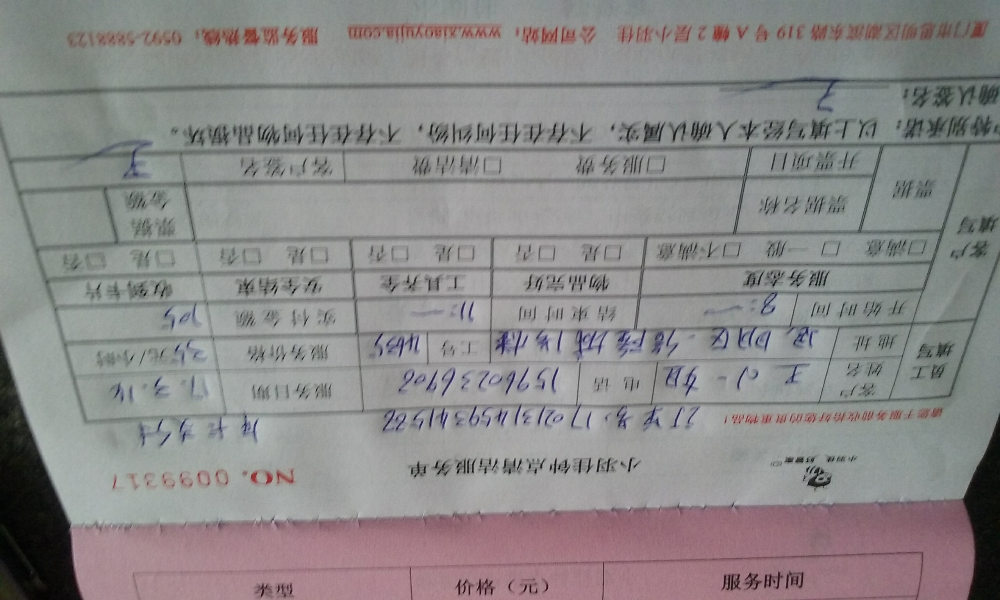 小羽佳 好管家
小羽佳钟点清洁服务单
NO. 0099317
请您于服务前收拾好您的贵重物品!
订单号:17021314593941588
员工填写
客户姓名 王小姐 电话 15960236908 服务日期 17.3.14
地址 工号 4635 服务价格 35元/小时
开始时间 8:— 结束时间 11:— 实付金额 105
客户填写
服务态度 物品完好 工具齐全 安全结束 收到卡片
□满意 □一般 □不满意 □是 □否 □是 □否 □是 □否 □是 □否
票据 票据名称 票据金额
开票项目 □服务费 □清洁费 客户签名 王
特别承诺:以上填写经本人确认属实,不存在任何纠纷,不存在任何物品损坏。
确认签名:
厦门市思明区湖滨东路319号A幢2层小羽佳 公司网站:www.xiaoyujia.com 服务监督热线:0592-5888123
类型 价格(元) 服务时间